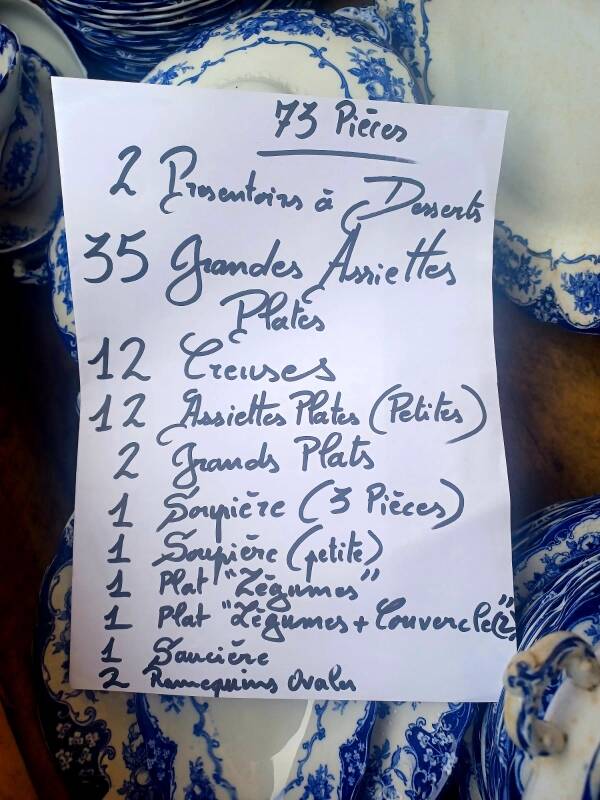 73 Pièces
2 Présentoirs à Desserts
35 Grandes Assiettes
Plates
12 Creuses
12 Assiettes Plates (Petites)
2 Grands Plats
1 Soupière (3 Pièces)
1 Soupière (petite)
1 Plat "Légumes"
1 Plat "Légumes + Couvercle(2)"
1 Saucière
2 Ramequins Ovales